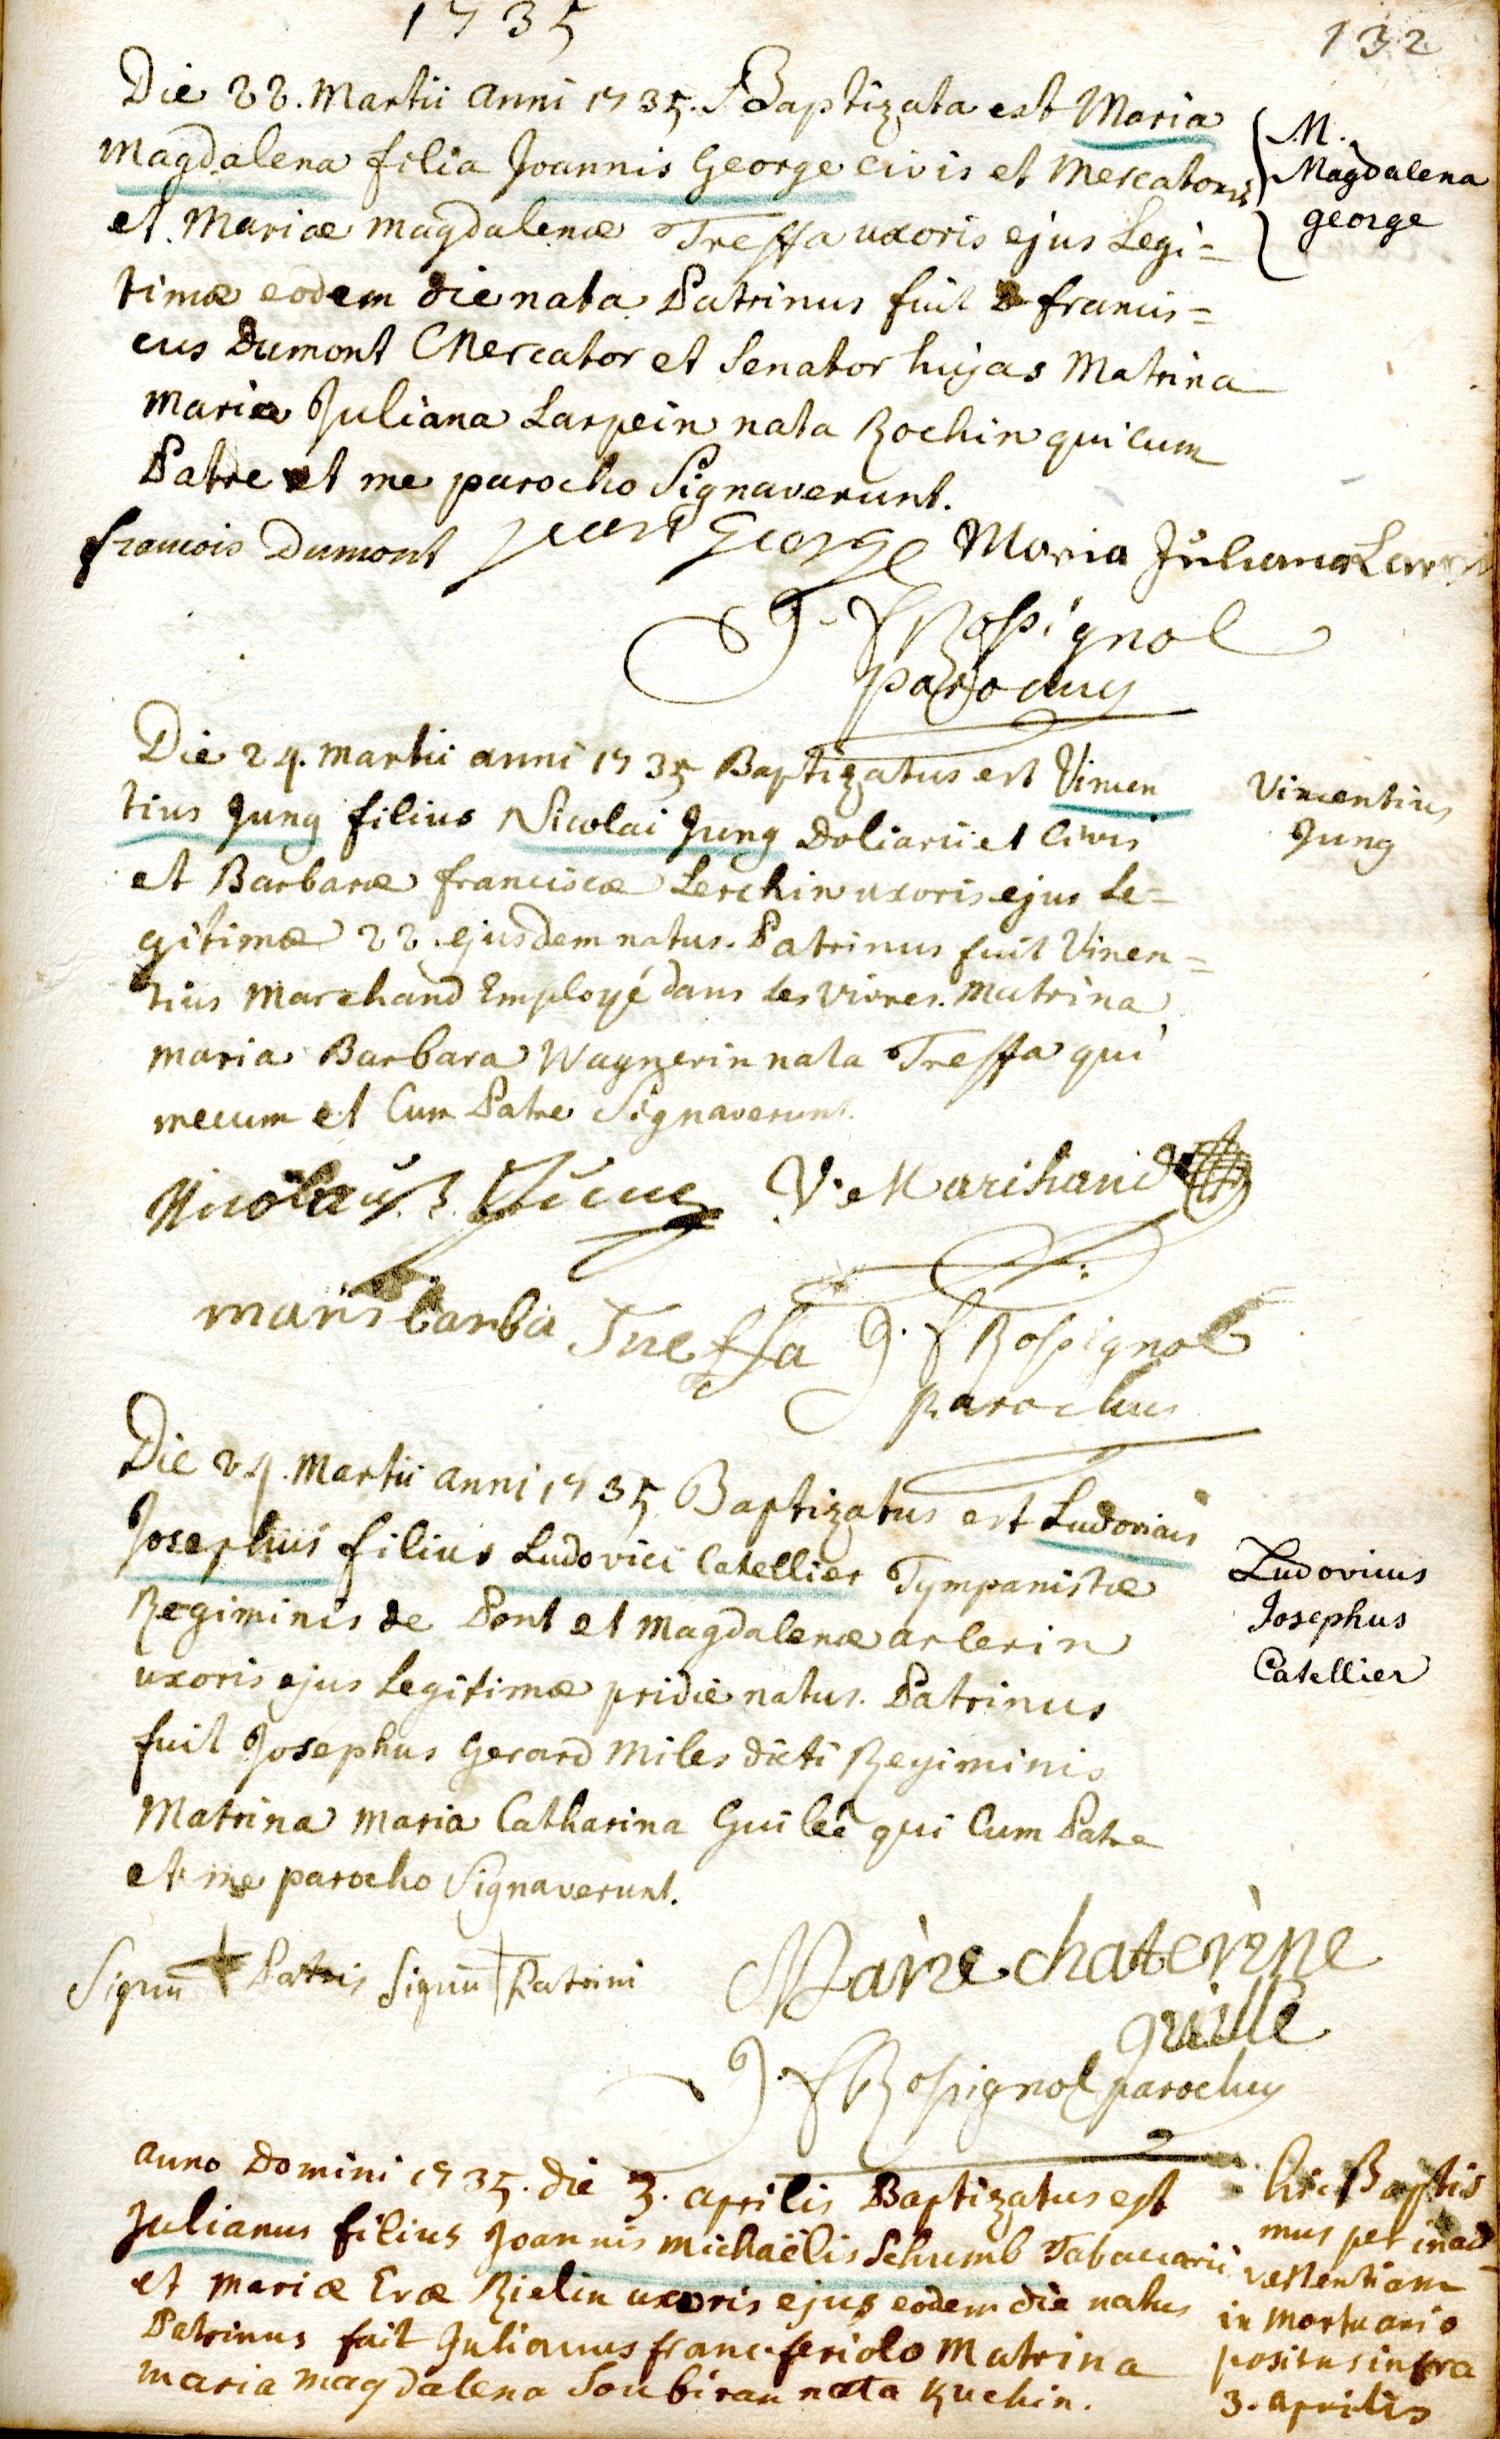 1735
132
Die 22. Martii anni 1735. Baptizata est Maria
Magdalena filia Joannis George civis et Mercatoris
et Mariæ Magdalenæ Treffa uxoris ejus Legi=
timæ eodem die nata Patrinus fuit francis=
cus Dumont Mercator et Senator hujas Matrina
Maria Juliana Larpein nata Rochin qui cum
Patre et me parocho Signaverunt.
M.
Magdalena
george
francois Dumont Jean George Maria Juliana
J. f Rossignol
parochus
Die 24. Martii anni 1735 Baptizatus est Vincen
tius Jung filius Nicolai Jung Doliarii et Civis
et Barbaræ franciscæ Lerchin uxoris ejus le=
gitimæ 22. ejusdem natus. Patrinus fuit Vincen=
tius Marchand Employé dans les vivres. Matrina
maria Barbara Wagnerin nata Treffa qui
mecum et Cum Patre Signaverunt.
Vincentius
Jung
Nicolaus Jung V. Marchand
maria barba Treffa J. f Rossignol
parochus
Die 24. Martii anni 1735 Baptizatus est Ludovicus
Josephus filius Ludovici Catellier Tympanistæ
Regiminis de Pont et Magdalenæ arlerin
uxoris ejus Legitimæ pridie natus. Patrinus
fuit Josephus Gerard Miles dicti Regiminis
Matrina Maria Catharina Guileé qui Cum Patre
et me parocho Signaverunt.
Ludovicus
Josephus
Catellier
Signū + Patris Signū + Patrini Marie chaterine
guille
J. f Rossignol parochus
anno Domini 1735. die 3. aprilis Baptizatus est
Julianus filius Joannis michaëlis Schumb Tabacarii
et Mariæ Evæ Rielin uxoris ejus eodem die natus
Patrinus fuit Julianus franc. feriolo Matrina
maria magdalena Soubiran nata Kuchin.
hic Baptis
mus per inad
vertentiam
in mortuario
positus infra
3. aprilis